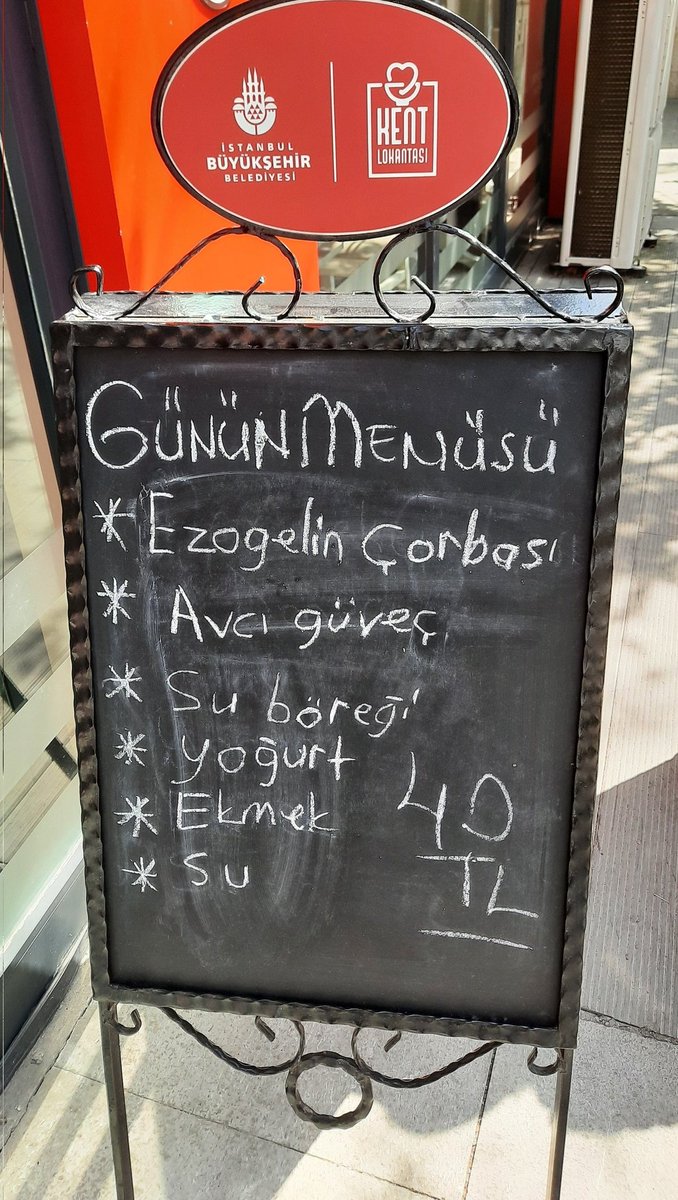 İSTANBUL
BÜYÜKŞEHİR
BELEDİYESİ
KENT
LOKANTASI
GÜNÜN MENÜSÜ
* Ezogelin Çorbası
* Avcı güveç
* Su böreği
* yoğurt
* Ekmek
* Su
40
TL